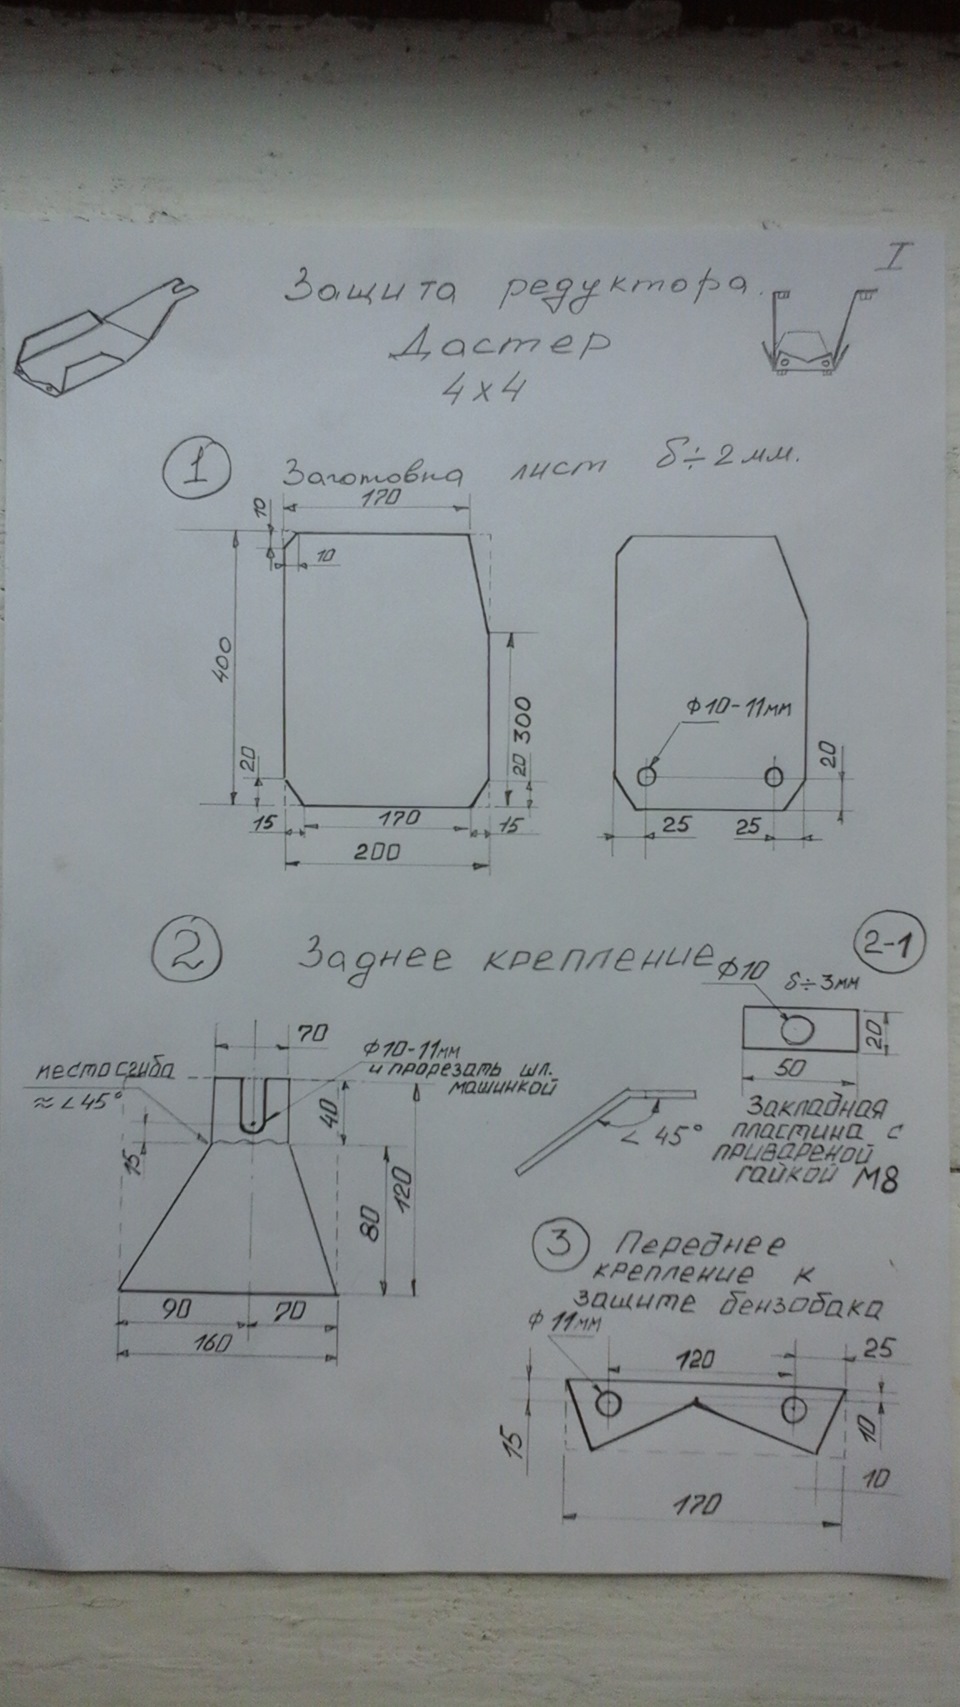 I
Защита редуктора.
Дастер
4х4
1
Заготовка лист δ÷2мм.
170
10
10
400
300
20
20
15
170
15
200
Ф10-11мм
20
25
25
2
Заднее крепление
2-1
Ф10
δ÷3мм
20
50
Закладная
пластина с
привареной
гайкой М8
70
место сгиба
≈∠45°
Ф10-11мм
и прорезать шл.
машинкой
40
15
80
120
90
70
160
∠45°
3
Переднее
крепление к
защите бензобака
Ф11мм
120
25
15
10
10
170